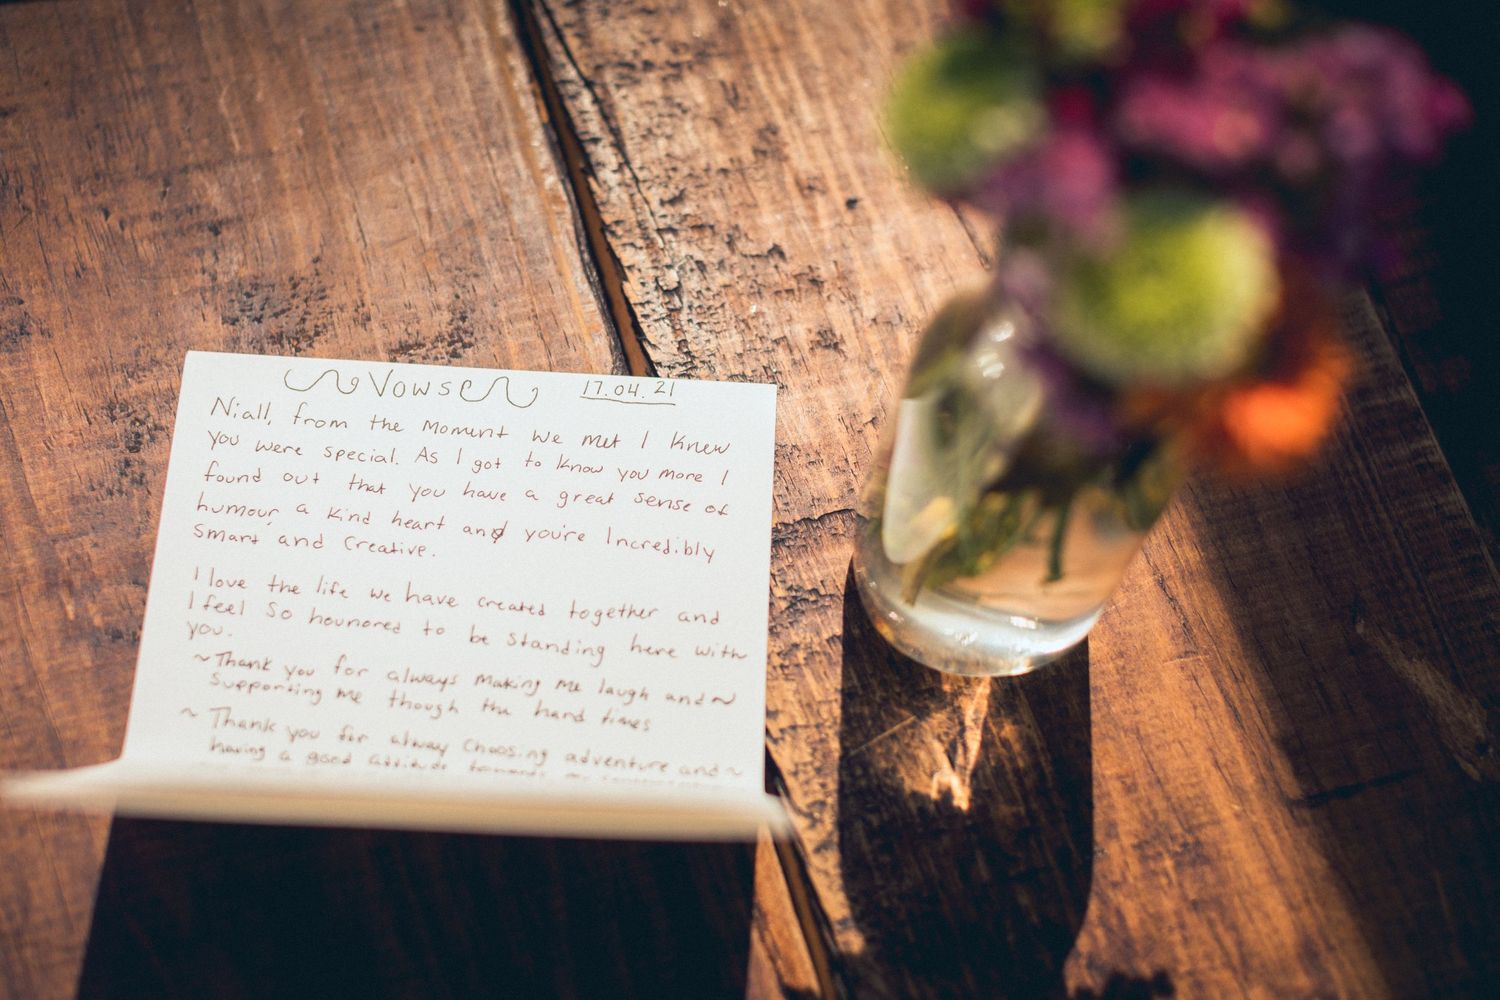 Vows 17.04.21
Niall, from the moment we met I knew
you were special. As I got to know you more I
found out that you have a great sense of
humour, a kind heart and you're Incredibly
smart and Creative.
I love the life we have created together and
I feel so hounored to be standing here with
you.
~Thank you for always making me laugh and~
supporting me though the hard times
~ Thank you for alway choosing adventure and~
having a good attitude towards